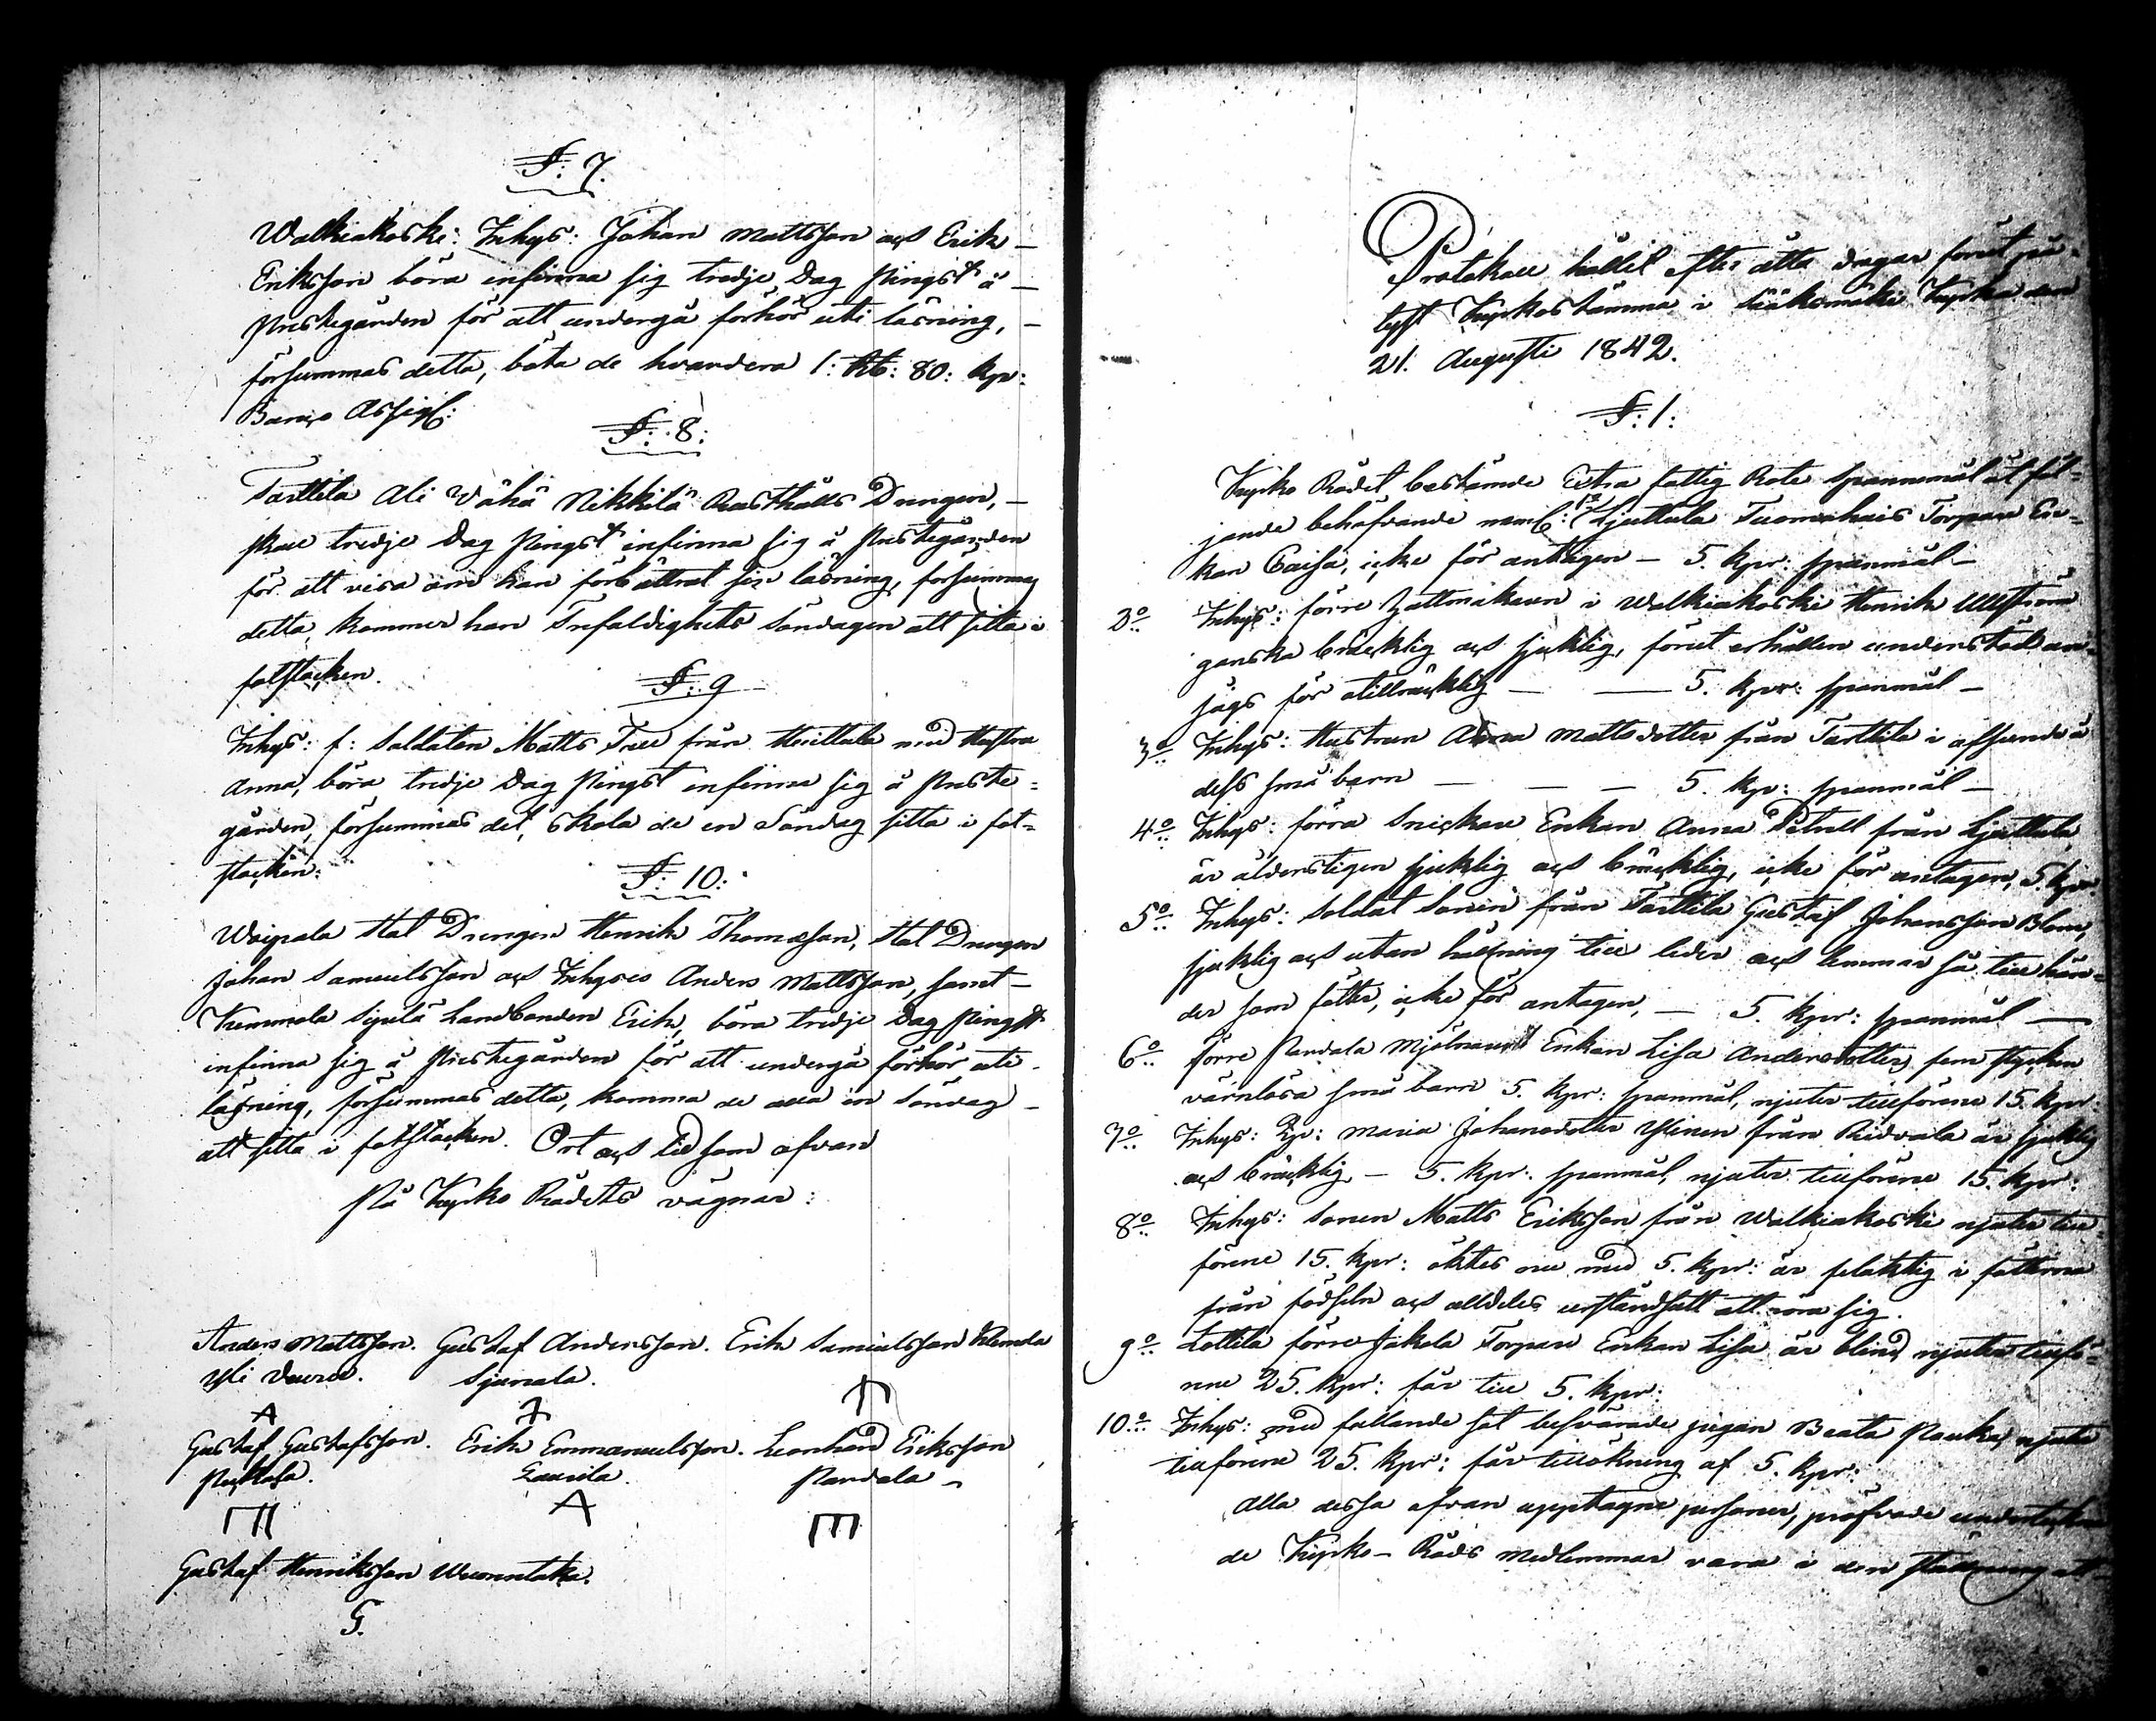 §: 7.
Walkiakoski: Inhys: Johan Mattsson och Erik
Eriksson böra infinna sig tredje Dag Pingst å
Prestegården för att undergå förhör uti läsning,
försummas detta, böta de hvardera 1: Rb: 80: kpr:
Banco Assign:
§: 8:
Tarttila Ali Wähä Nikkilä Rusthålls Drengen,
skall tredje Dag Pingst infinna sig å Prestegården
för att visa om han förbättrat sin läsning, försummas
detta, kommer han Trefaldighets Söndagen att sitta i
fotstocken.
§: 9
Inhys: f: Soldaten Matts Frell från Huittula med Hustru
Anna, böra tredje Dag Pingst infinna sig å Preste=
gården, försummas det, skola de en Söndag sitta i fot=
stocken:
§: 10:
Woipala Hol Drengen Henrik Thomasson, Hol Drengen
Johan Samuelsson och Inhyses Anders Mattsson, samt
Kemmola Sipilä Landbonden Erik, böra tredje Dag Pingst
infinna sig å Prestegården för att undergå förhör uti
läsning, försummas detta, komma de alla en Söndag
att sitta i fotstocken. Ort och tid som ofvan
På Kyrko Rådets vägnar:
Anders Mattsson. Gustaf Andersson. Erik Samuelsson Klemola
Yli Sjunala.
Gustaf Gustafsson. Erik Emmanuelsson. Leonhard Eriksson
Laurila. Pandala
Gustaf Henriksson Wuorentaka.
G.
Protokoll hållit efter åtta dagar förut på=
lyst Kyrkostämma i Sääksmäki Kyrka den
21. Augusti 1842.
§: 1:
Kyrko Rådet bestämde Extra fattig Rote spannemål åt föl=
jande behöfvande neml: 1o Ljuttula Tuomahais Torpare En=
kan Caisa, icke för antagen — 5. kpr: spanmål —
2o Inhys: förre Hattmakaren i Walkiakoski Henrik
ganska bräcklig och sjuklig, förut erhållen understöd an=
sågs för otillräcklig — — 5. kpr: spanmål —
3o Inhys: Hustrun Anna Mattsdotter från Tarttila i afseende å
dess små barn — — — 5. kpr: spanmål —
4o Inhys: förra Snickare Enkan Anna Petrell från Ljuttula,
är ålderstigen sjuklig och bräcklig, icke för antagen, 5. kpr
5o Inhys: Soldat Sonen från Tarttila Gustaf Johansson Blom,
sjuklig och utan hållning till leder och lemmar så till hän=
der som fötter, icke för antagen, — 5. kpr: spanmål —
6o förre Pandala Mjölnare Enkan Lisa Andersdotter, fem stycken
värnlösa små barn 5. kpr: spanmål, njuter tillförene 15. kpr:
7o Inhys: Maria Johansdotter Ylinen från Ridvala är sjuklig
och bräcklig, — 5. kpr: spanmål, njuter tillförene 15. kpr:
8o Inhys: Sonen Matts Eriksson från Walkiakoski njuter till=
förene 15. kpr: öktes nu med 5. kpr: är felaktig i fötterna
från födseln och alldeles urståndsatt att röra sig.
9o Lottila förre Jakola Torpare Enkan Lisa är blind, njuter tillfö=
rene 25. kpr: får till 5. kpr:
10o Inhys: med fallande sot besvärade pigan Beata njuter
tillförene 25. kpr: får tillökning af 5. kpr:
Alla dessa ofvan upptagna personer, pröfvade undertecknade
de Kyrko-Råds medlemmar vara i den ställning att